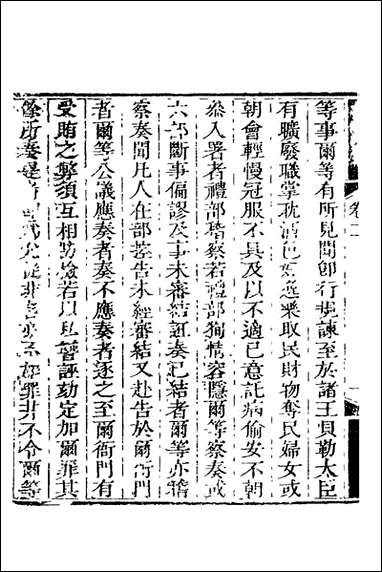 等事爾等有所見聞卽行規諫至於諸王貝勒大臣
有曠廢職掌耽酒色好逸樂取民財物奪民婦女或
朝會輕慢冠服不具及以不適己意託病偷安不朝
參入署者禮部稽察若禮部狥情容隱爾等察奏或
六部斷事偏謬及事未審結誑奏已結者爾等亦稽
察奏聞凡人在部控告未經審結又赴告於爾衙門
者爾等公議應奏者奏不應奏者逐之至爾衙門有
受賄之弊須互相防檢若以私讐誣劾定加爾罪其
餘所奏是者卽從非者亦不加罪并不令爾等
卷二